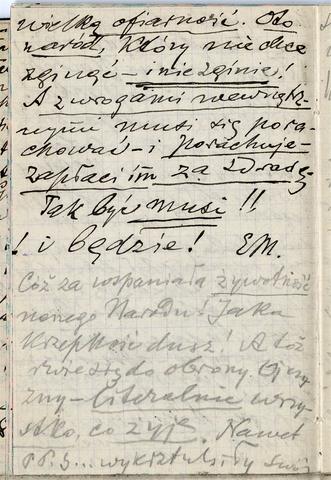 wielką ofiarność. Oto
naród, który nie chce
zginąć – i nie zginie!
A z wrogami wewnętrz-
nymi musi się pora-
chować – i porachuje –
zapłaci im za zdradę.
Tak być musi!!
! i będzie! EM.
Cóż za wspaniała żywotność
naszego Narodu! Jaka
krzepkość dusz! A tóż
rwie się do obrony Ojczy-
zny – literalnie wszy-
stko, co żyje. Nawet
PPS... wykształciły swój